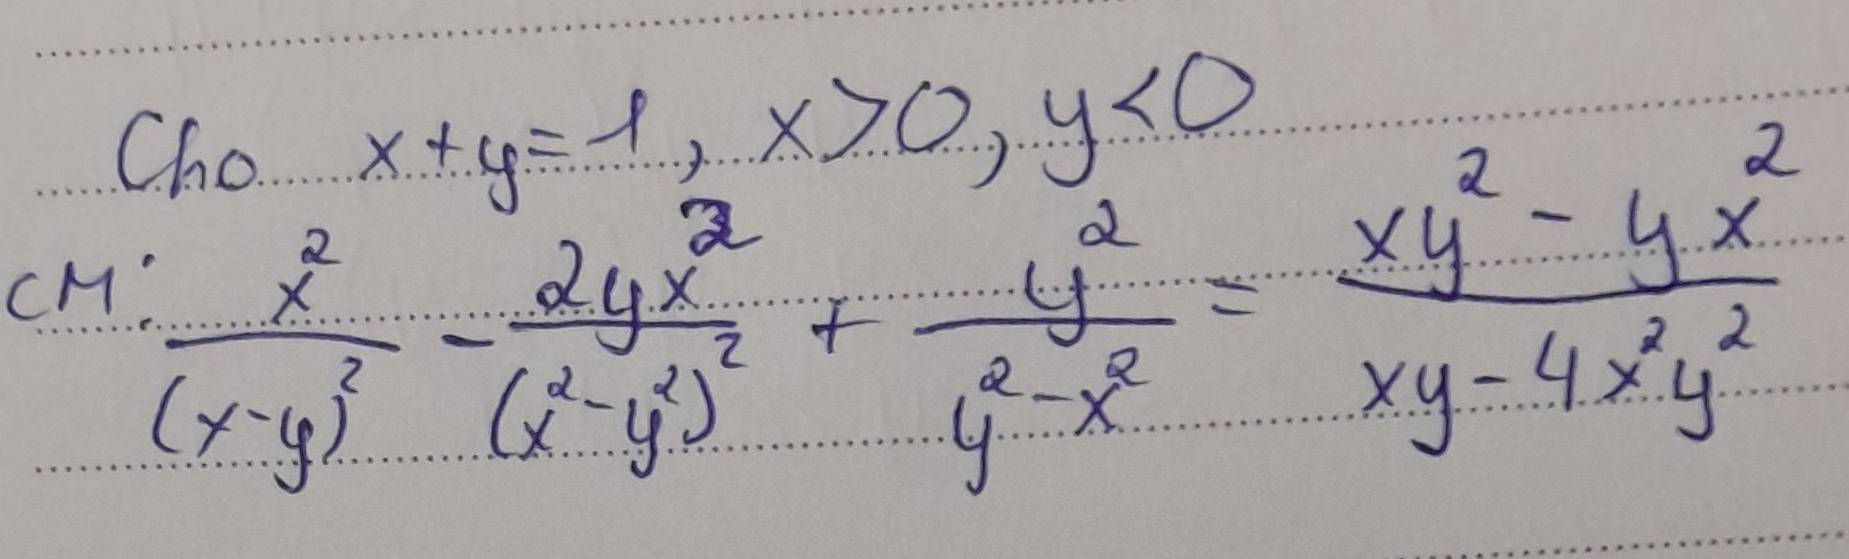 Cho x + y = 1, x > 0, y < 0
CM: x²/(x-y)² - 2yx²/(x²-y²)² + y²/(y²-x²) = (xy² - yx²)/(xy - 4x²y²)